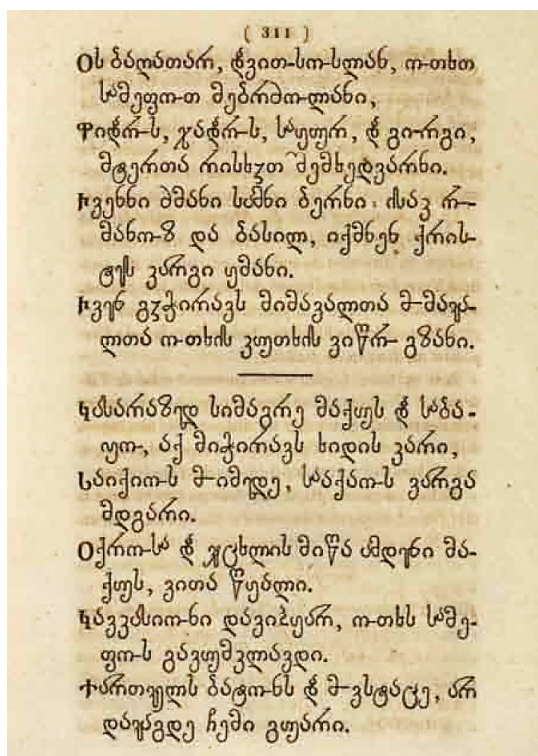 ( 311 )
ოს ბაღათარ, დავით-სო-სლან, ოთხთ
სამეფოთ მებრძოლანი,
ფიდაროს, ჯადაროს, საყურ, და გიორგი,
მტერთა რისხჳთ შემხედვარნი.
ჩვენნი ძმანი სამნი ბერნი: ისაკ რო-
მანოზ და ბასილ, იქმნენ ქრის-
ტეს კარგი ყმანი.
ჩვენ გჳჭირავს მიმავალთა მომავა-
ლთა ოთხის კუთხის ვიწრო გზანი.
კასარაზედ სიმაგრე მაქუს და საბა-
ჟო, აქ მიჭირავს ხიდის კარი,
საიქიოს მოიმედე, სააქაოს კარგა
მდგარი.
ოქროსა და ვერცხლის მიწა ამდენი მა-
ქუს, ვითა წყალი.
კავკასიონი დავიპყარ, ოთხს სამე-
ფოს გავუმკლავდი.
ქართველს ბატონს და მოვსტაცე, არ
დავაგდე ჩემი გვარი.